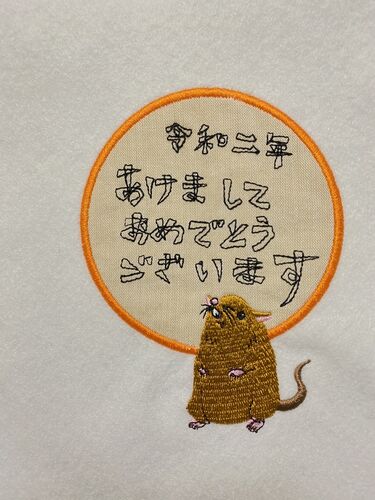 令和二年
あけまして
おめでとう
ございます